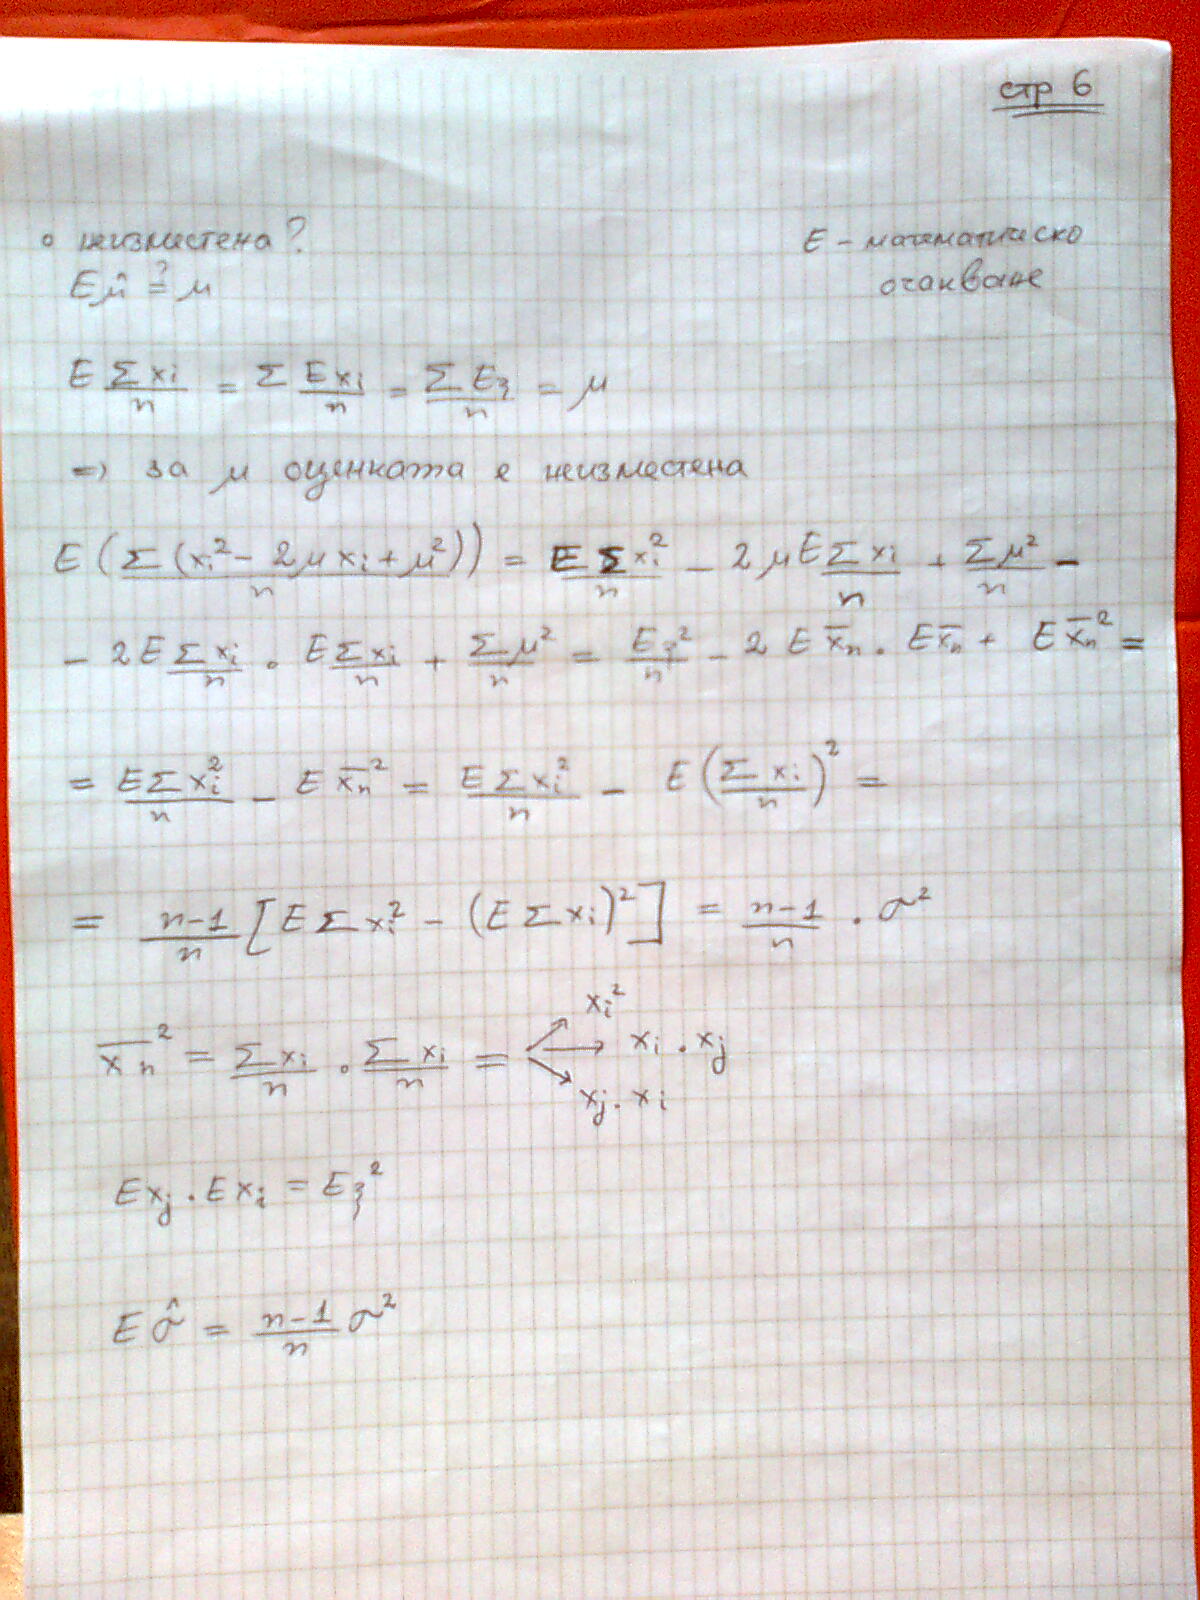 стр 6
• неизместена?
E – математическо
очакване
Eμ̂ ≟ μ
E Σxi/n = Σ Exi/n = ΣEξ/n = μ
=> за μ оценката е неизместена
E(Σ(xi² – 2μxi + μ²))/n = EΣxi²/n – 2μEΣxi/n + Σμ²/n –
– 2EΣxi/n . EΣxi/n + Σμ²/n = Eξ²/n – 2Ex̄n . Ex̄n + Ex̄n² =
= EΣxi²/n – Ex̄n² = EΣxi²/n – E(Σxi/n)² =
= n-1/n [EΣxi² – (EΣxi)²] = n-1/n . σ²
x̄n² = Σxi/n . Σxi/n = ↗ xi² → xi . xj ↘ xj . xi
Exj . Exi = Eξ²
Eσ̂ = n-1/n σ²